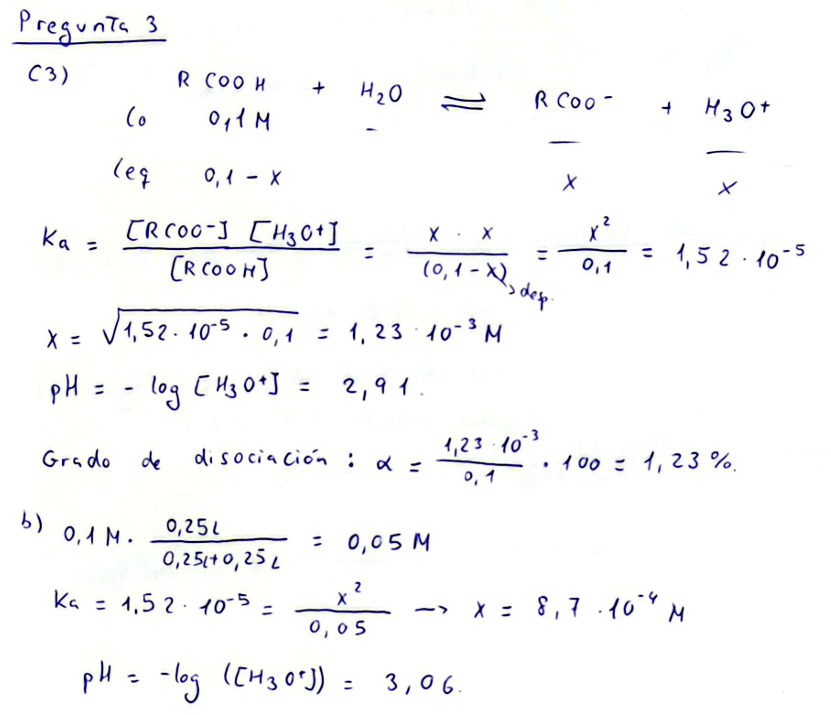 Pregunta 3
C3) RCOOH + H₂O ⇌ RCOO⁻ + H₃O⁺
Co 0,1M – — —
Ceq 0,1 - x x x
Ka = [RCOO⁻] [H₃O⁺] / [RCOOH] = x · x / (0,1 - x) = x² / 0,1 = 1,52 · 10⁻⁵
→ desp.
x = √(1,52 · 10⁻⁵ · 0,1) = 1,23 · 10⁻³ M
pH = - log [H₃O⁺] = 2,91.
Grado de disociación : α = 1,23 · 10⁻³ / 0,1 · 100 = 1,23 %.
b) 0,1 M · 0,25L / 0,25L+0,25L = 0,05 M
Ka = 1,52 · 10⁻⁵ = x² / 0,05 → x = 8,7 · 10⁻⁴ M
pH = -log ([H₃O⁺]) = 3,06.